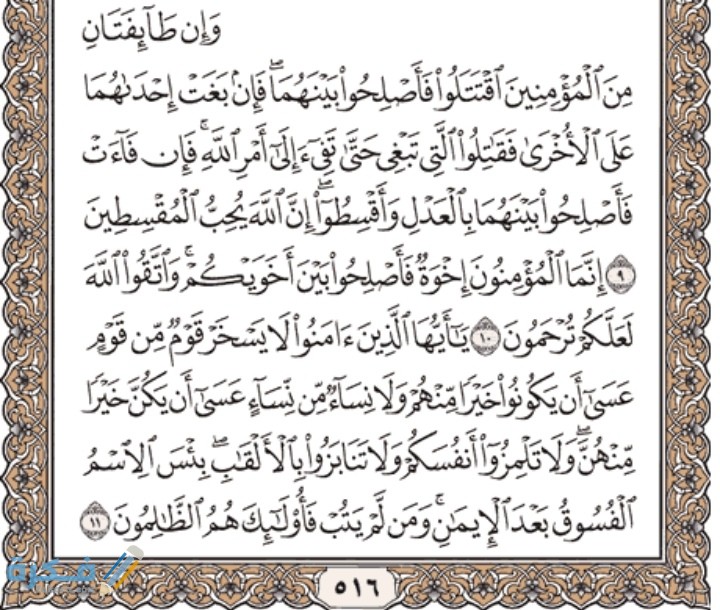 وَإِن طَآئِفَتَانِ
مِنَ ٱلْمُؤْمِنِينَ ٱقْتَتَلُوا۟ فَأَصْلِحُوا۟ بَيْنَهُمَا ۖ فَإِنۢ بَغَتْ إِحْدَىٰهُمَا
عَلَى ٱلْأُخْرَىٰ فَقَٰتِلُوا۟ ٱلَّتِى تَبْغِى حَتَّىٰ تَفِىٓءَ إِلَىٰٓ أَمْرِ ٱللَّهِ ۚ فَإِن فَآءَتْ
فَأَصْلِحُوا۟ بَيْنَهُمَا بِٱلْعَدْلِ وَأَقْسِطُوٓا۟ ۖ إِنَّ ٱللَّهَ يُحِبُّ ٱلْمُقْسِطِينَ
٩ إِنَّمَا ٱلْمُؤْمِنُونَ إِخْوَةٌ فَأَصْلِحُوا۟ بَيْنَ أَخَوَيْكُمْ ۚ وَٱتَّقُوا۟ ٱللَّهَ
لَعَلَّكُمْ تُرْحَمُونَ ١٠ يَٰٓأَيُّهَا ٱلَّذِينَ ءَامَنُوا۟ لَا يَسْخَرْ قَوْمٌ مِّن قَوْمٍ
عَسَىٰٓ أَن يَكُونُوا۟ خَيْرًا مِّنْهُمْ وَلَا نِسَآءٌ مِّن نِّسَآءٍ عَسَىٰٓ أَن يَكُنَّ خَيْرًا
مِّنْهُنَّ ۖ وَلَا تَلْمِزُوٓا۟ أَنفُسَكُمْ وَلَا تَنَابَزُوا۟ بِٱلْأَلْقَٰبِ ۖ بِئْسَ ٱلِٱسْمُ
ٱلْفُسُوقُ بَعْدَ ٱلْإِيمَٰنِ ۚ وَمَن لَّمْ يَتُبْ فَأُو۟لَٰٓئِكَ هُمُ ٱلظَّٰلِمُونَ ١١
فكرة
٥١٦